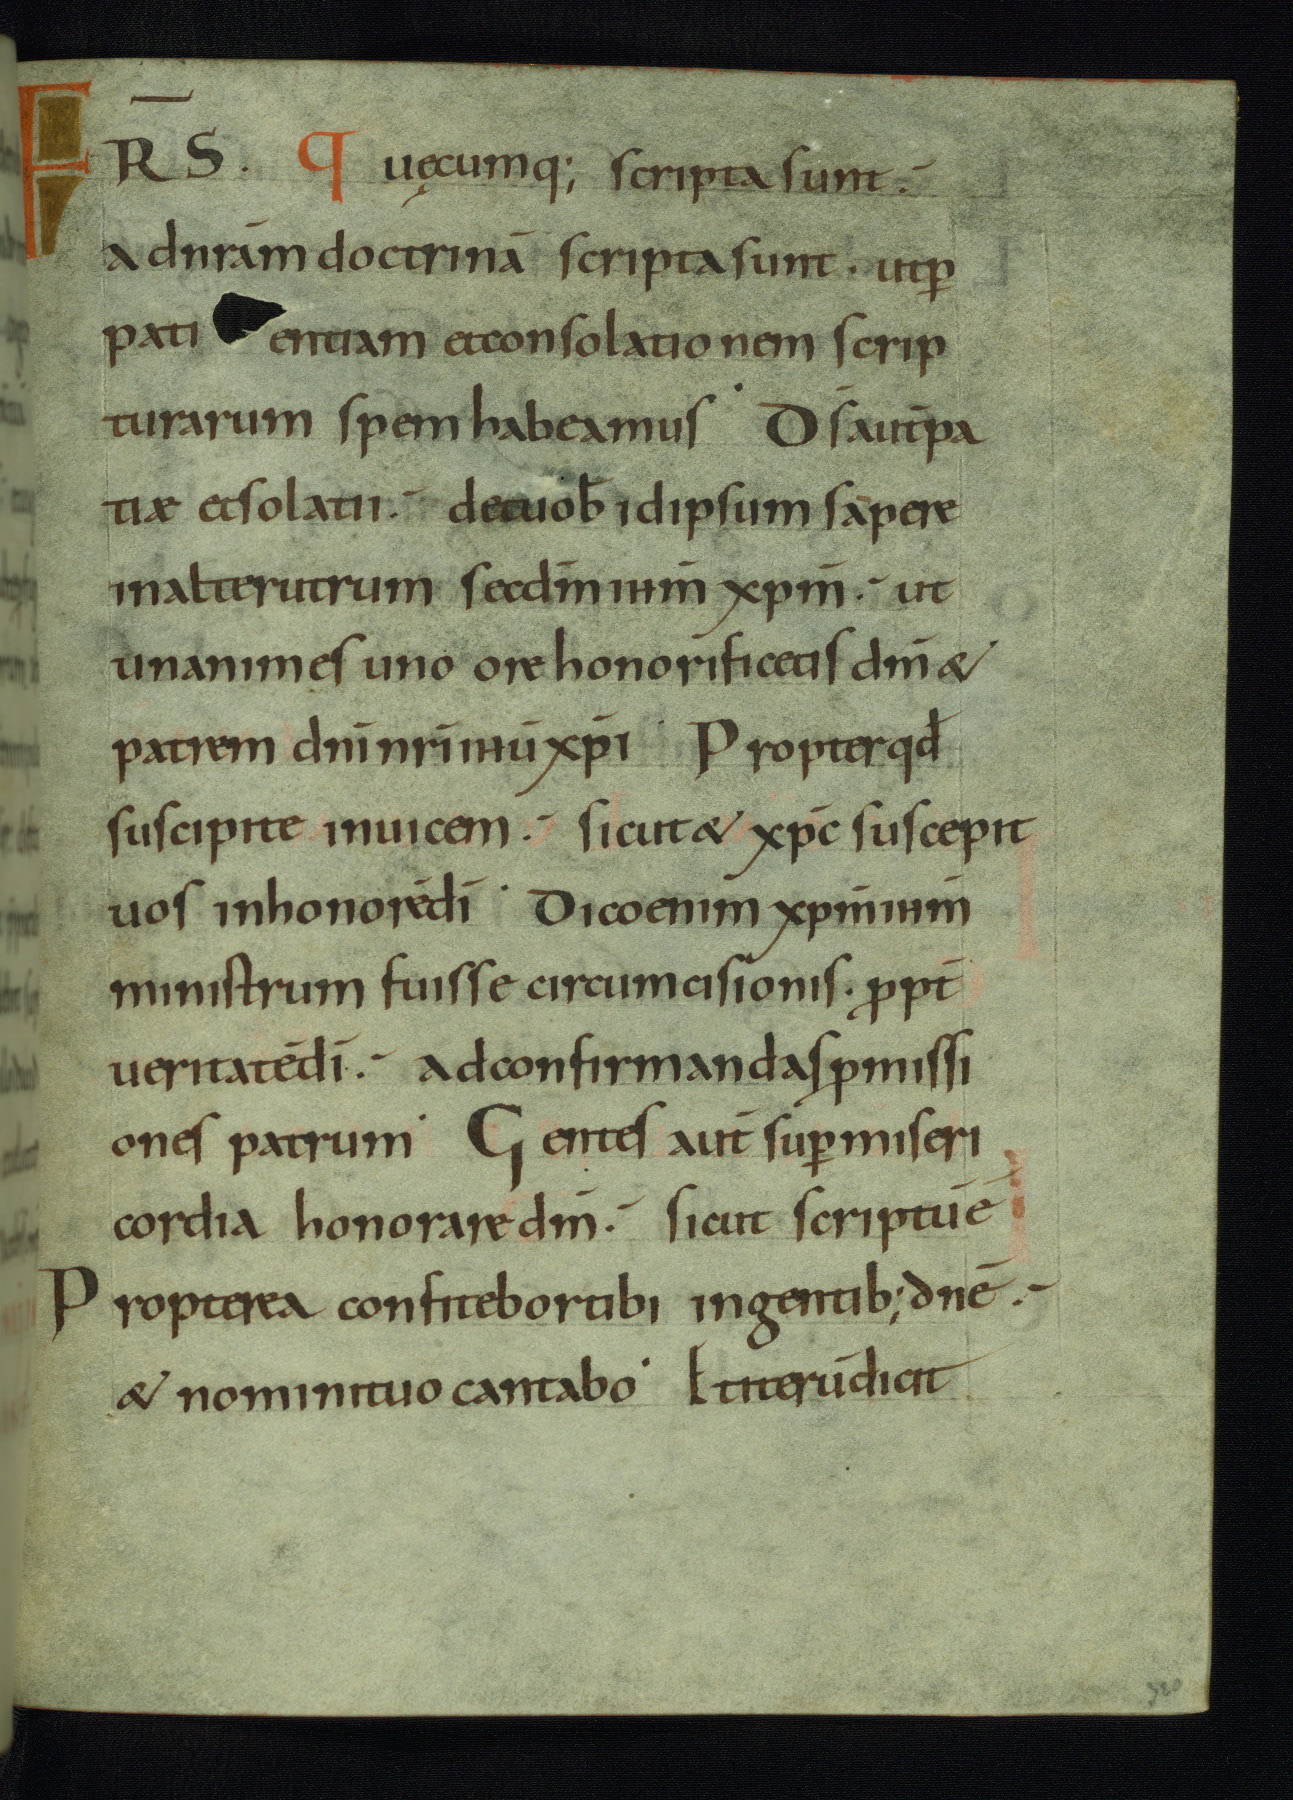 FRS̅. Quęcumq; scripta sunt.
ad nrām doctrinā scripta sunt. ut ꝑ
patientiam et consolationem scrip
turarum spem habeamus. Ds̄ aut̄ pa
tiæ et solatii. det uob̄ id ipsum sapere
in alterutrum secdm̄ ihm̄ xpm̄. ut
unanimes uno ore honorificetis dm̄ &
patrem dnī nrī ihū xpī. Propter qđ
suscipite inuicem. sicut & xpc̄ suscepit
uos in honorē dī. Dico enim xpm̄ ihm̄
ministrum fuisse circumcisionis. ꝓpt̄
ueritatē dī. ad confirmandas ꝓmissi
ones patrum. Gentes aut̄ suꝑ miseri
cordia honorare dm̄. sicut scriptū ē
Propterea confitebor tibi in gentib; dnē.
& nomini tuo cantabo. Et iterū dicit